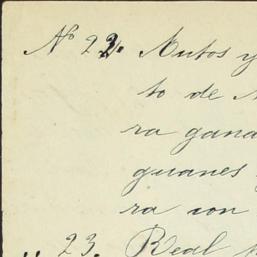 Nº 22. Autos y
to de
ra gana
guanes
ra con
" 23. Real